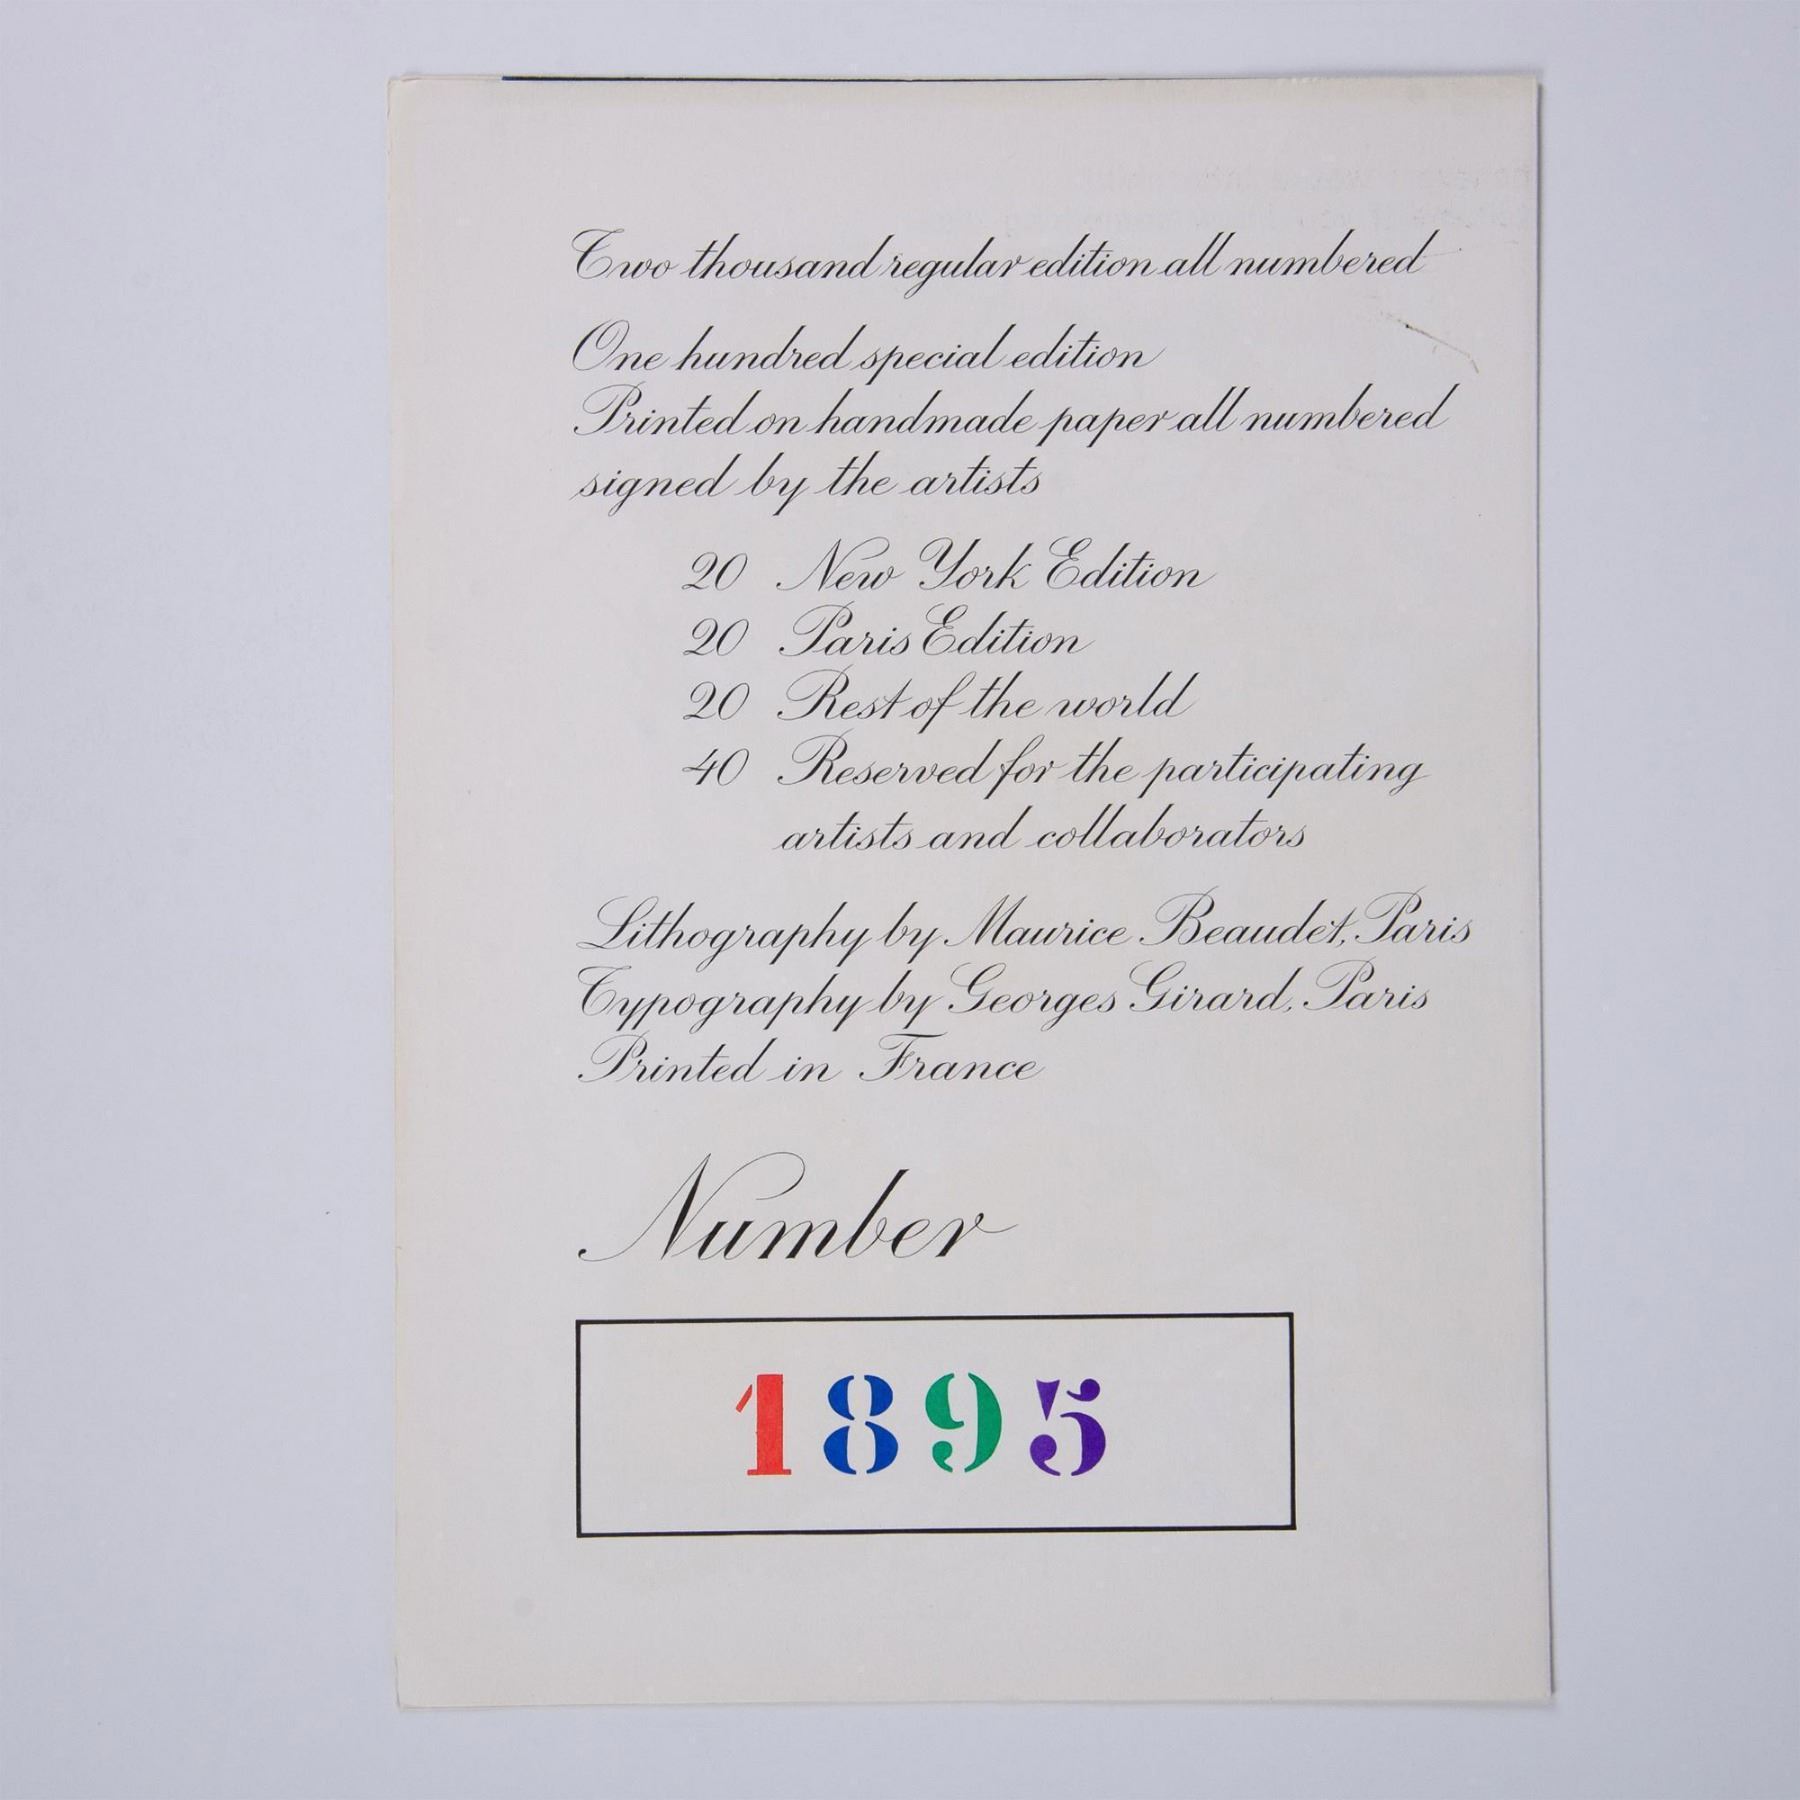 Two thousand regular edition all numbered
One hundred special edition
Printed on handmade paper all numbered
signed by the artists
20 New York Edition
20 Paris Edition
20 Rest of the world
40 Reserved for the participating
artists and collaborators
Lithography by Maurice Beaudet, Paris
Typography by Georges Girard, Paris
Printed in France
Number
1895